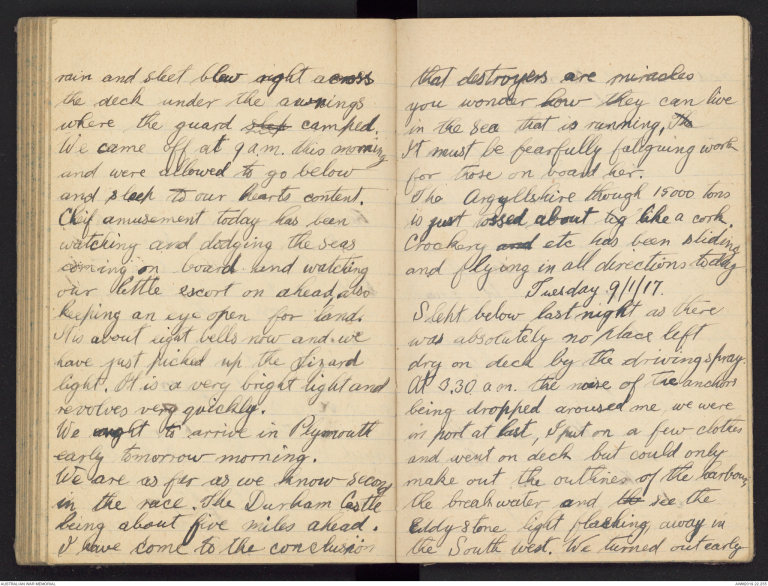 rain and sleet blew right across
the deck under the awnings
where the guard slep camped.
We came off at 9 a.m. this morning
and were allowed to go below
and sleep to our hearts content.
Chief amusement today has been
watching and dodging the seas
coming on board and watching
our little escort on ahead, also
keeping an eye open for land.
It is about eight bells now and we
have just picked up the Lizard
light. It is a very bright light and
revolves very quickly.
We ought to arrive in Plymouth
early tomorrow morning.
We are as far as we know second
in the race. The Durham Castle
being about five miles ahead.
I have come to the conclusion
that destroyers are miracles
you wonder how they can live
in the sea that is running, Th
It must be fearfully fatiguing work
for those on board her.
The Argyllshire though 15000 tons
is just tossed about like a cork.
Crockery and etc has been sliding
and flying in all directions today
Tuesday 9/1/17.
Slept below last night as there
was absolutely no place left
dry on deck by the driving spray.
At 3.30 a.m. the noise of the anchors
being dropped aroused me, we were
in port at last, I put on a few clothes
and went on deck but could only
make out the outlines of the harbour,
the breakwater and the see the
Eddystone light flashing away in
the South West. We turned out early
AUSTRALIAN WAR MEMORIAL